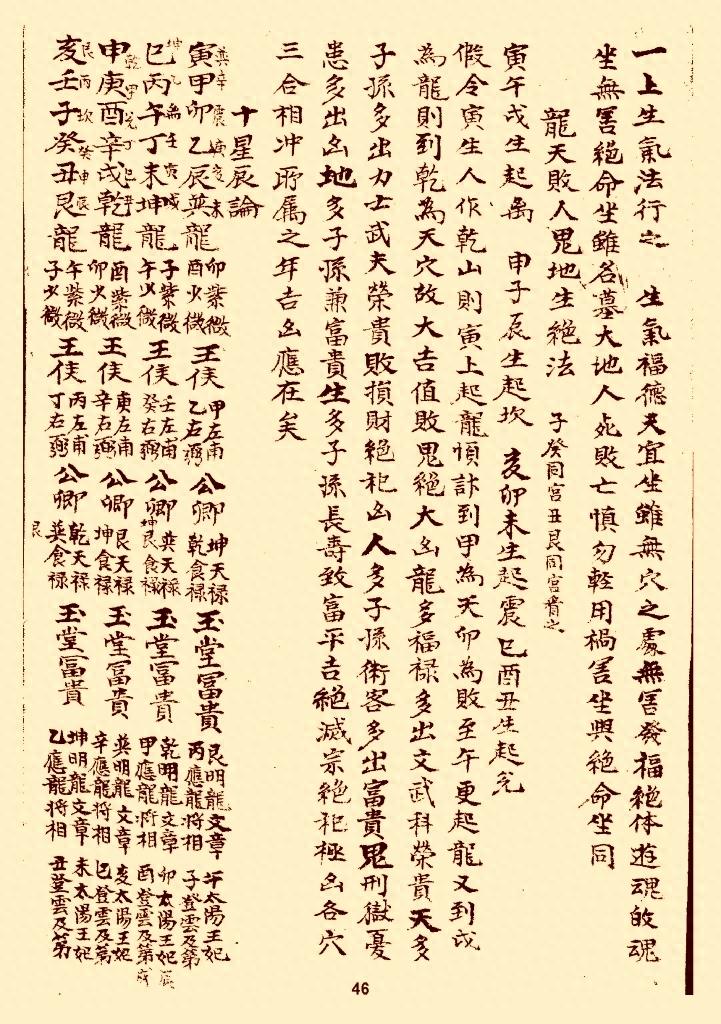 一上生氣法行之　生氣福德天宜坐雖無穴之處無害發福絶体遊魂的魂
坐無害絶命坐雖名墓大地人死敗亡慎勿輕用禍害坐與絶命坐同
龍天敗人鬼地生絶法　子癸同宮丑艮同宮
寅午戌生起离　申子辰生起坎　亥卯未生起震　巳酉丑生起兌
假令寅生人作乾山則寅上起龍順計到甲為天卯為敗至午更起龍又到戌
為龍則到乾為天穴故大吉值敗鬼絶大凶龍多福禄多出文武科榮貴天多
子孫多出力士武夫榮貴敗損財絶祀凶人多子孫術客多出富貴鬼刑獄憂
患多出凶地多子孫兼富貴生多子孫長壽致富平吉絶滅宗絶祀極凶各穴
三合相冲所属之年吉凶應在矣
十星辰論
寅甲卯乙辰巽龍　卯紫微　酉火微　王侯　甲左甫　乙右弼　公卿　坤天禄　乾食禄　玉堂富貴　艮明龍文章　丙應龍将相　午太陽王妃　子登雲及第
巳丙午丁未坤龍　子紫微　午火微　王侯　壬左甫　癸右弼　公卿　巽天禄　艮食禄　玉堂富貴　乾明龍文章　甲應龍将相　卯太陽王妃　酉登雲及第
申庚酉辛戌乾龍　酉紫微　卯火微　王侯　庚左甫　辛右弼　公卿　艮天禄　坤食禄　玉堂富貴　巽明龍文章　辛應龍将相　亥太陽王妃　巳登雲及第
亥壬子癸丑艮龍　午紫微　子火微　王侯　丙左甫　丁右弼　公卿　乾天禄　巽食禄　玉堂富貴　坤明龍文章　乙應龍将相　未太陽王妃　丑登雲及第
46